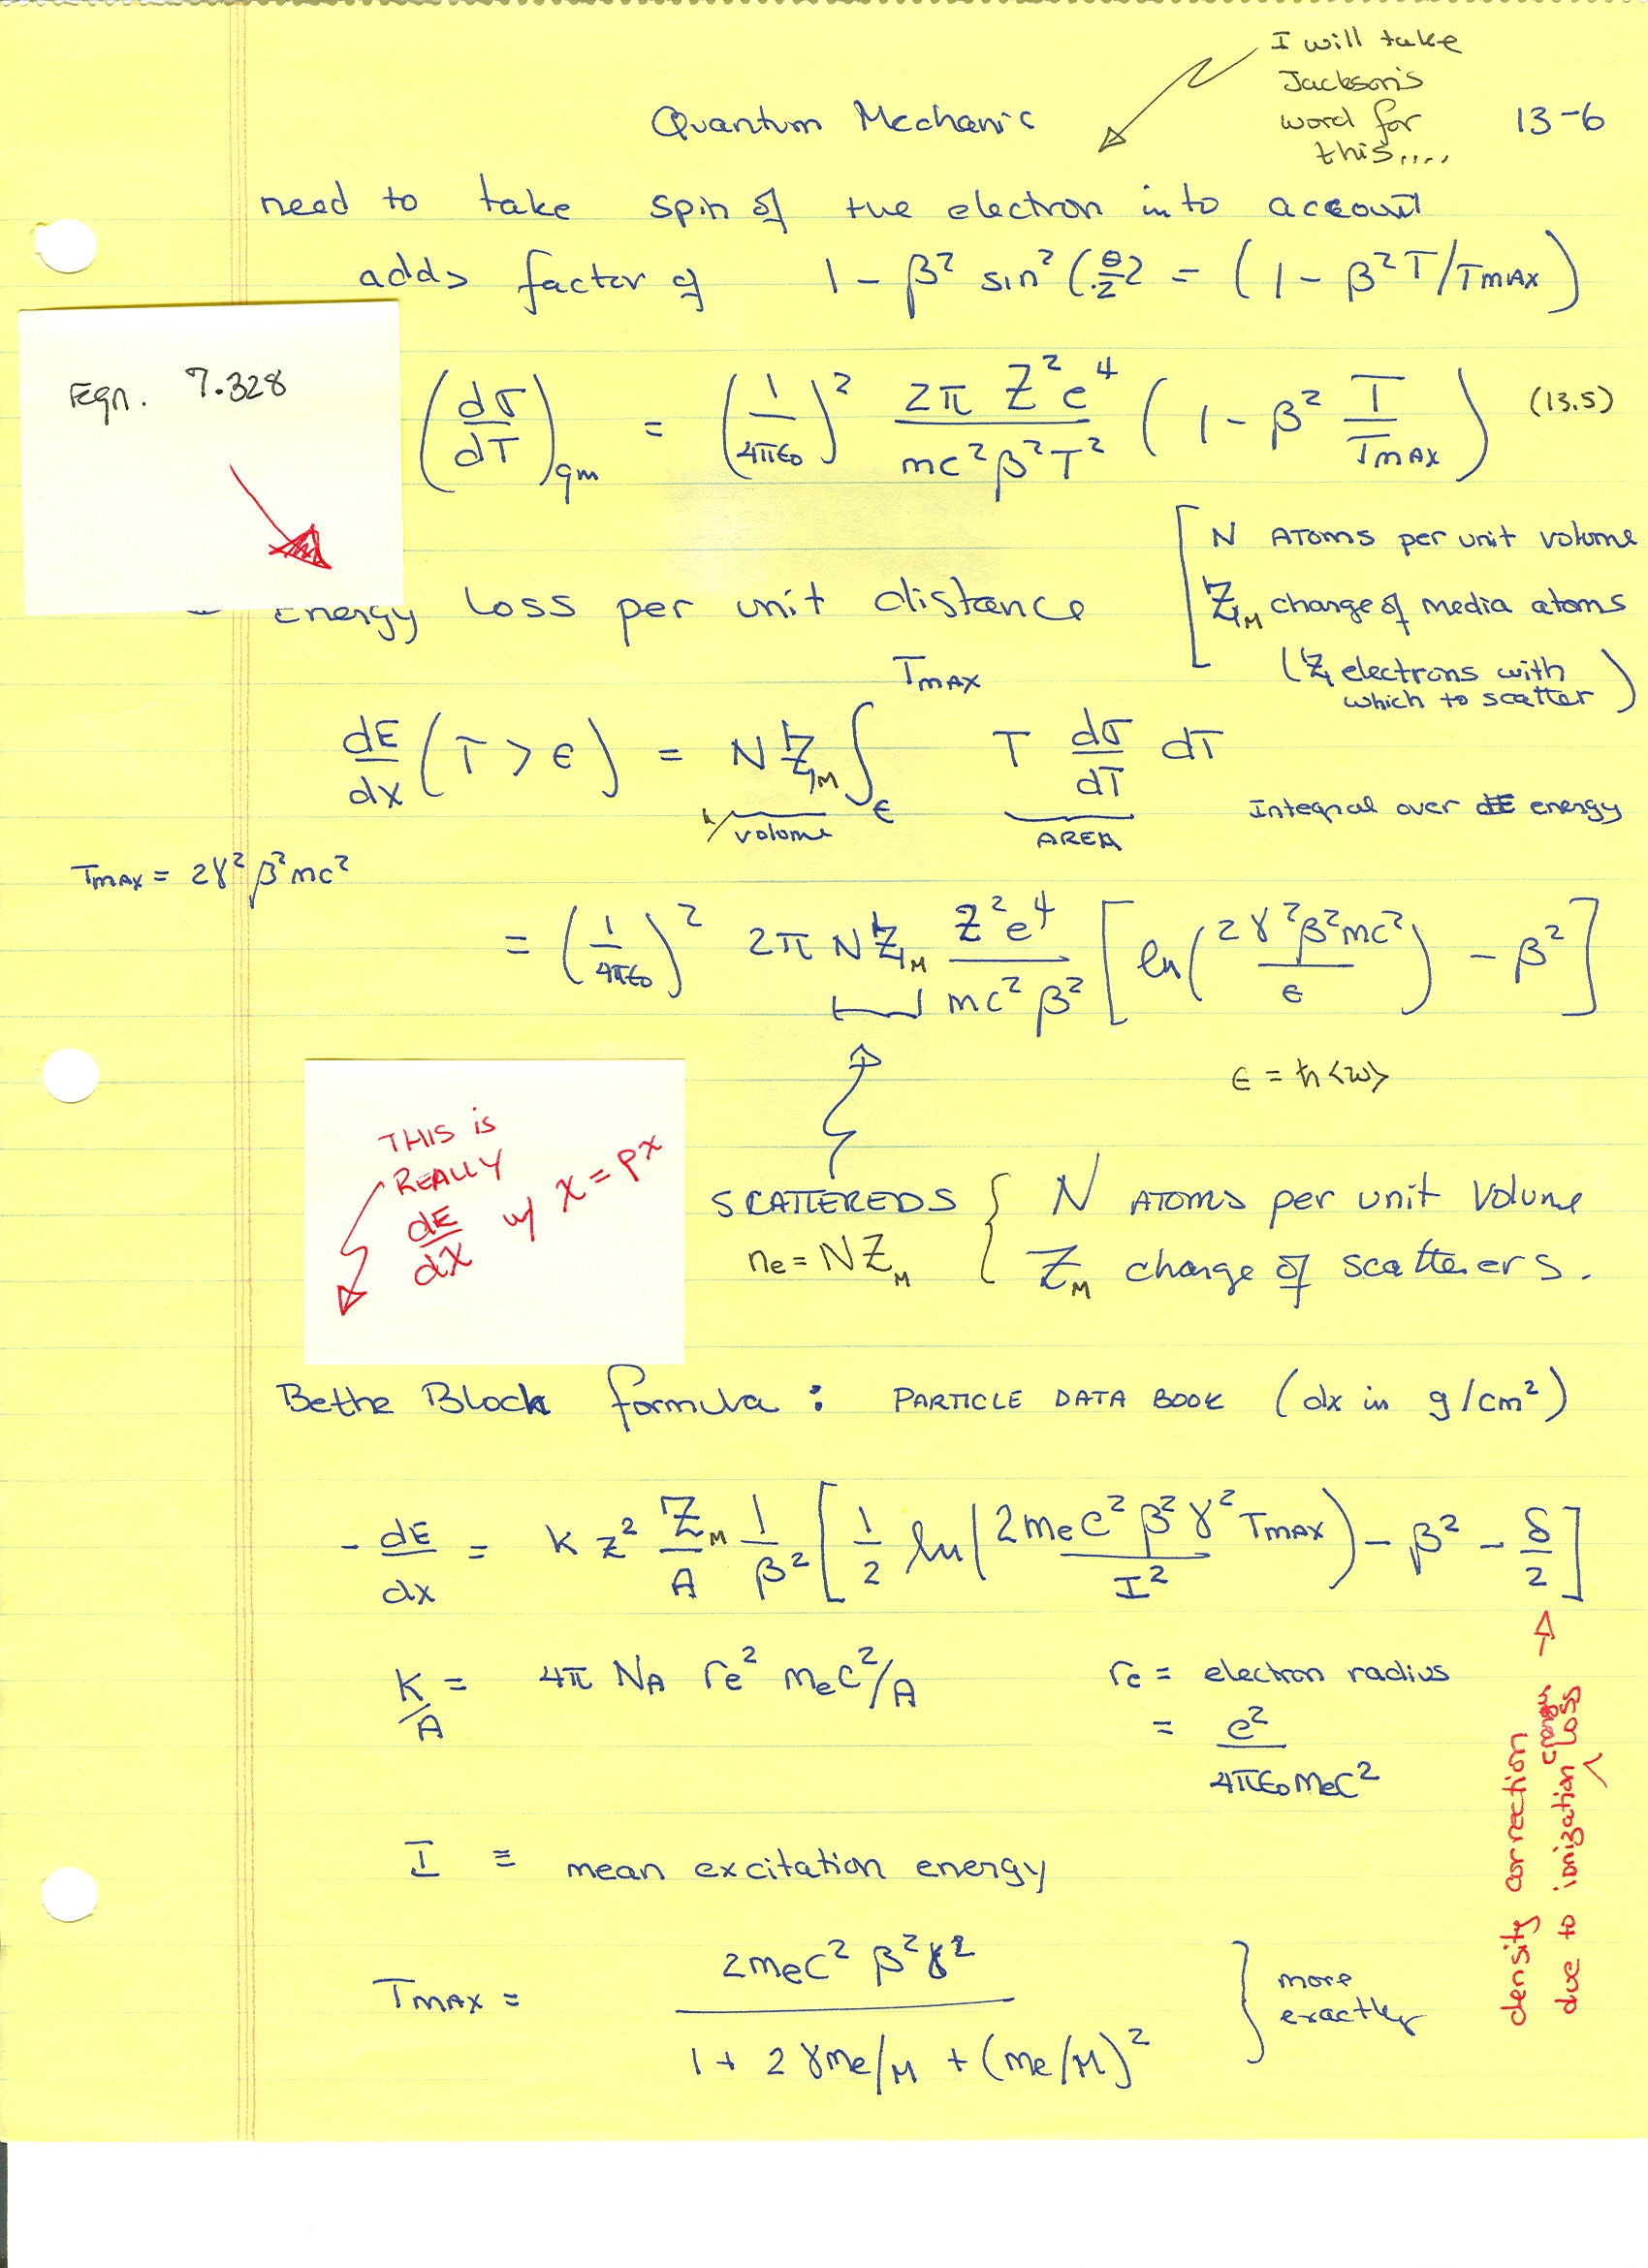 I will take
Jackson's
word for
this....
13-6
Quantum Mechanic
need to take spin of the electron into account
adds factor of 1 - β² sin² (θ/2) = (1 - β² T/TMAX)
Eqn. 7.328
(dσ/dT)qm = (1/4πε₀)² 2π Z² e⁴ / mc² β² T² (1 - β² T/TMAX) (13.5)
N ATOMS per unit volume
ZM charge of media atoms
(Z electrons with
which to scatter)
Energy Loss per unit distance
dE/dx (T > ε) = N ZM ∫ε^TMAX T dσ/dT dT
1/volume
AREA
Integral over dE energy
TMAX = 2γ² β² mc²
= (1/4πε₀)² 2π N ZM Z² e⁴ / mc² β² [ln(2γ² β² mc² / ε) - β²]
ε = ħ<ω>
THIS is
REALLY
dE/dX w/ X = ρx
SCATTEREDS { N ATOMS per unit Volume
ne = NZM ZM charge of scatterers.
Bethe Block formula : PARTICLE DATA BOOK (dx in g/cm²)
- dE/dx = K z² ZM/A 1/β² [1/2 ln(2mec² β² γ² TMAX / I²) - β² - δ/2]
K/A = 4π NA re² mec²/A
re = electron radius
= e² / 4πε₀mec²
density correction
due to ionization energy loss
I ≡ mean excitation energy
TMAX = 2mec² β² γ² / 1 + 2γme/M + (me/M)² } more
exactly